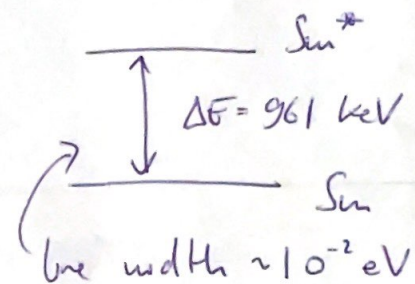 Sm*
ΔE = 961 keV
Sm
line width ~10⁻² eV